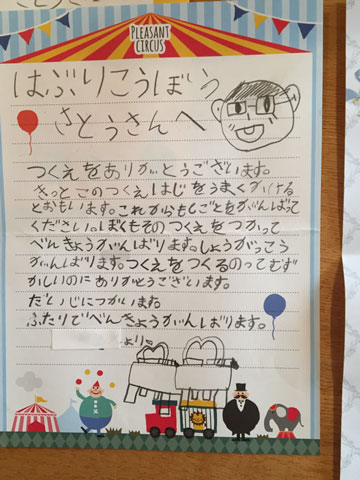 PLEASANT
CIRCUS
はぶりこうぼう
さとうさんへ
つくえをありがとうございます。
きっとこのつくえはじをうまくかける
とおもいます。これからもしごとをがんばって
ください。ぼくもそのつくえをつかって
べんきょうがんばります。しょうがっこう
がんばります。つくえをつくるのってむず
かしいのにありがとうございます。
だいじにつかいます。
ふたりでべんきょうがんばります。
より